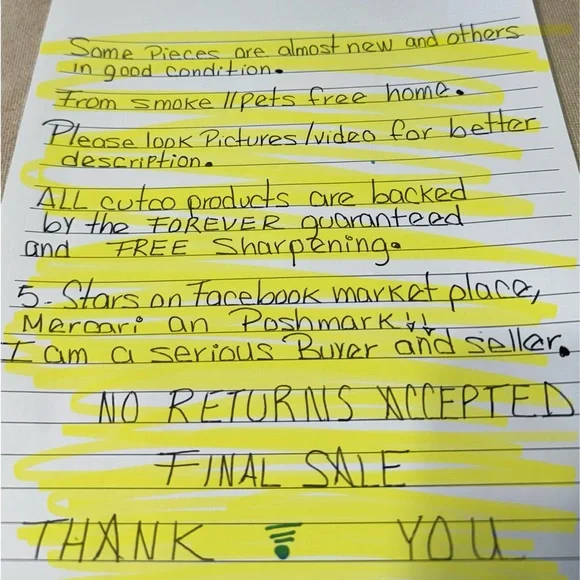 Some Pieces are almost new and others
in good condition.
From smoke //pets free home.
Please look Pictures/video for better
description.
ALL cutco products are backed
by the FOREVER guaranteed
and FREE Sharpening.
5-Stars on Facebook market place,
Mercari an Poshmark!!
I am a serious Buyer and seller.
NO RETURNS ACCEPTED
FINAL SALE
THANK YOU